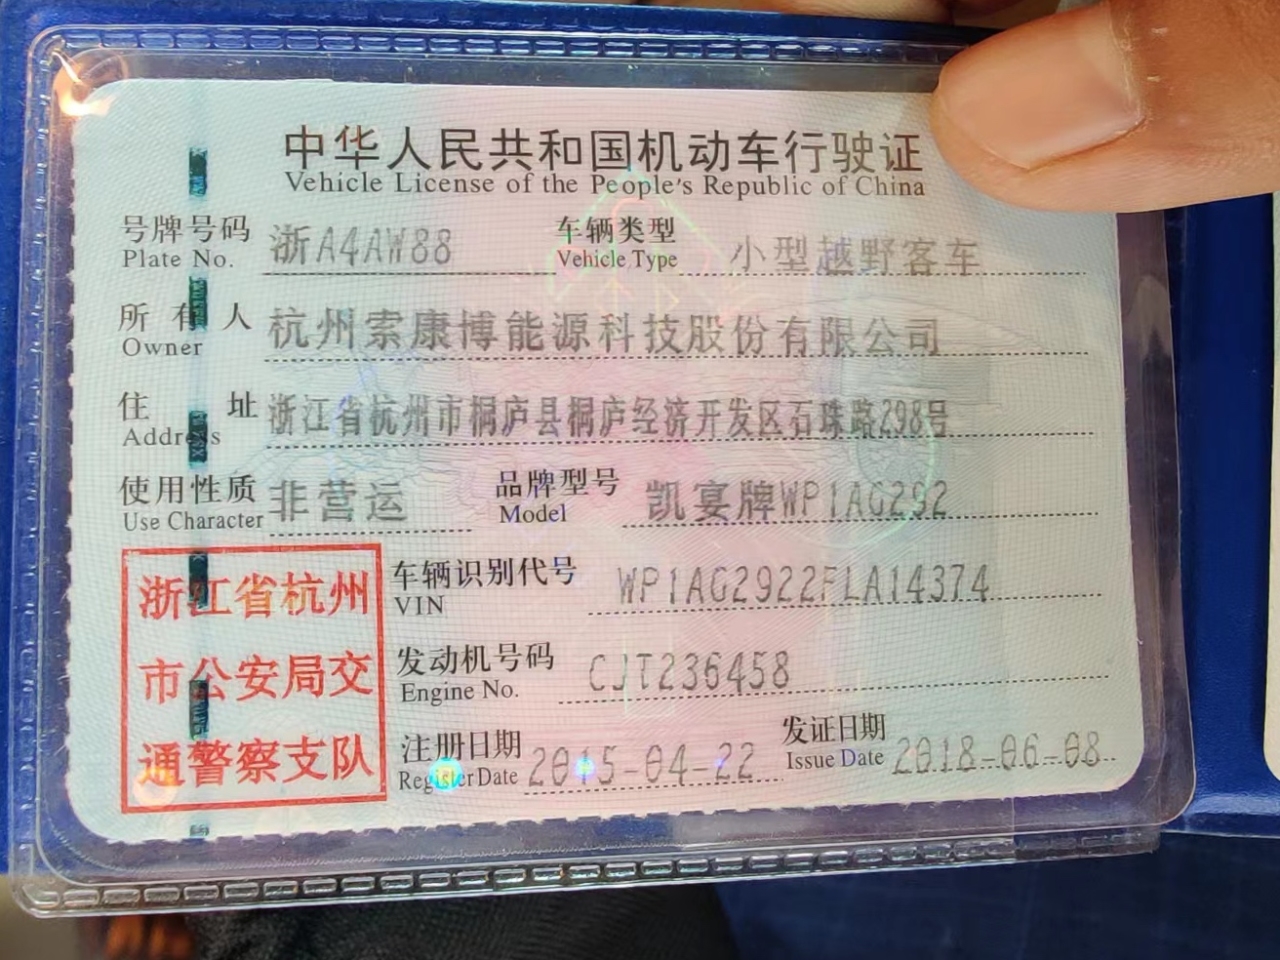 中华人民共和国机动车行驶证
Vehicle License of the People's Republic of China
号牌号码 浙A4AW88 车辆类型 小型越野客车
Plate No. Vehicle Type
所有人 杭州索康博能源科技股份有限公司
Owner
住址 浙江省杭州市桐庐县桐庐经济开发区石珠路298号
Address
使用性质 非营运 品牌型号 凯宴牌WP1AG292
Use Character Model
车辆识别代号 WP1AG2922FLA14374
VIN
发动机号码 CJT236458
Engine No.
注册日期 2015-04-22 发证日期 2018-06-08
Register Date Issue Date
浙江省杭州
市公安局交
通警察支队